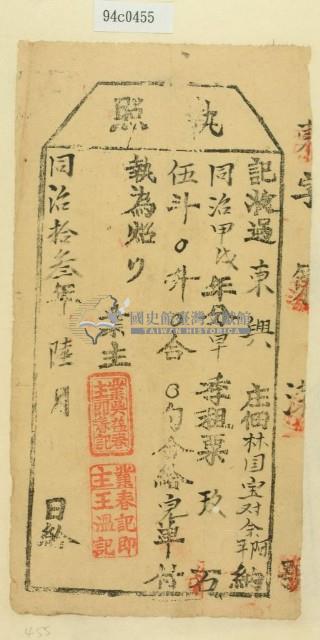 94c0455
執照
記收過東興庄佃林国宝对余阿 納
同治甲戌年分早季租粟玖石
伍斗０升 合０勺合給完單付
執為炤
業主
同治拾叁年陸月 日給
業主
主印
業春記即
主王溫記
東字 第
國史館臺灣文獻館
TAIWAN HISTORICA
455